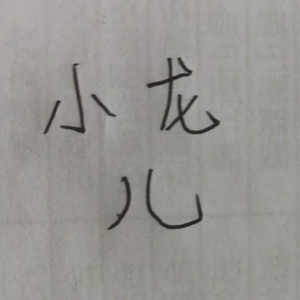 小龙
儿